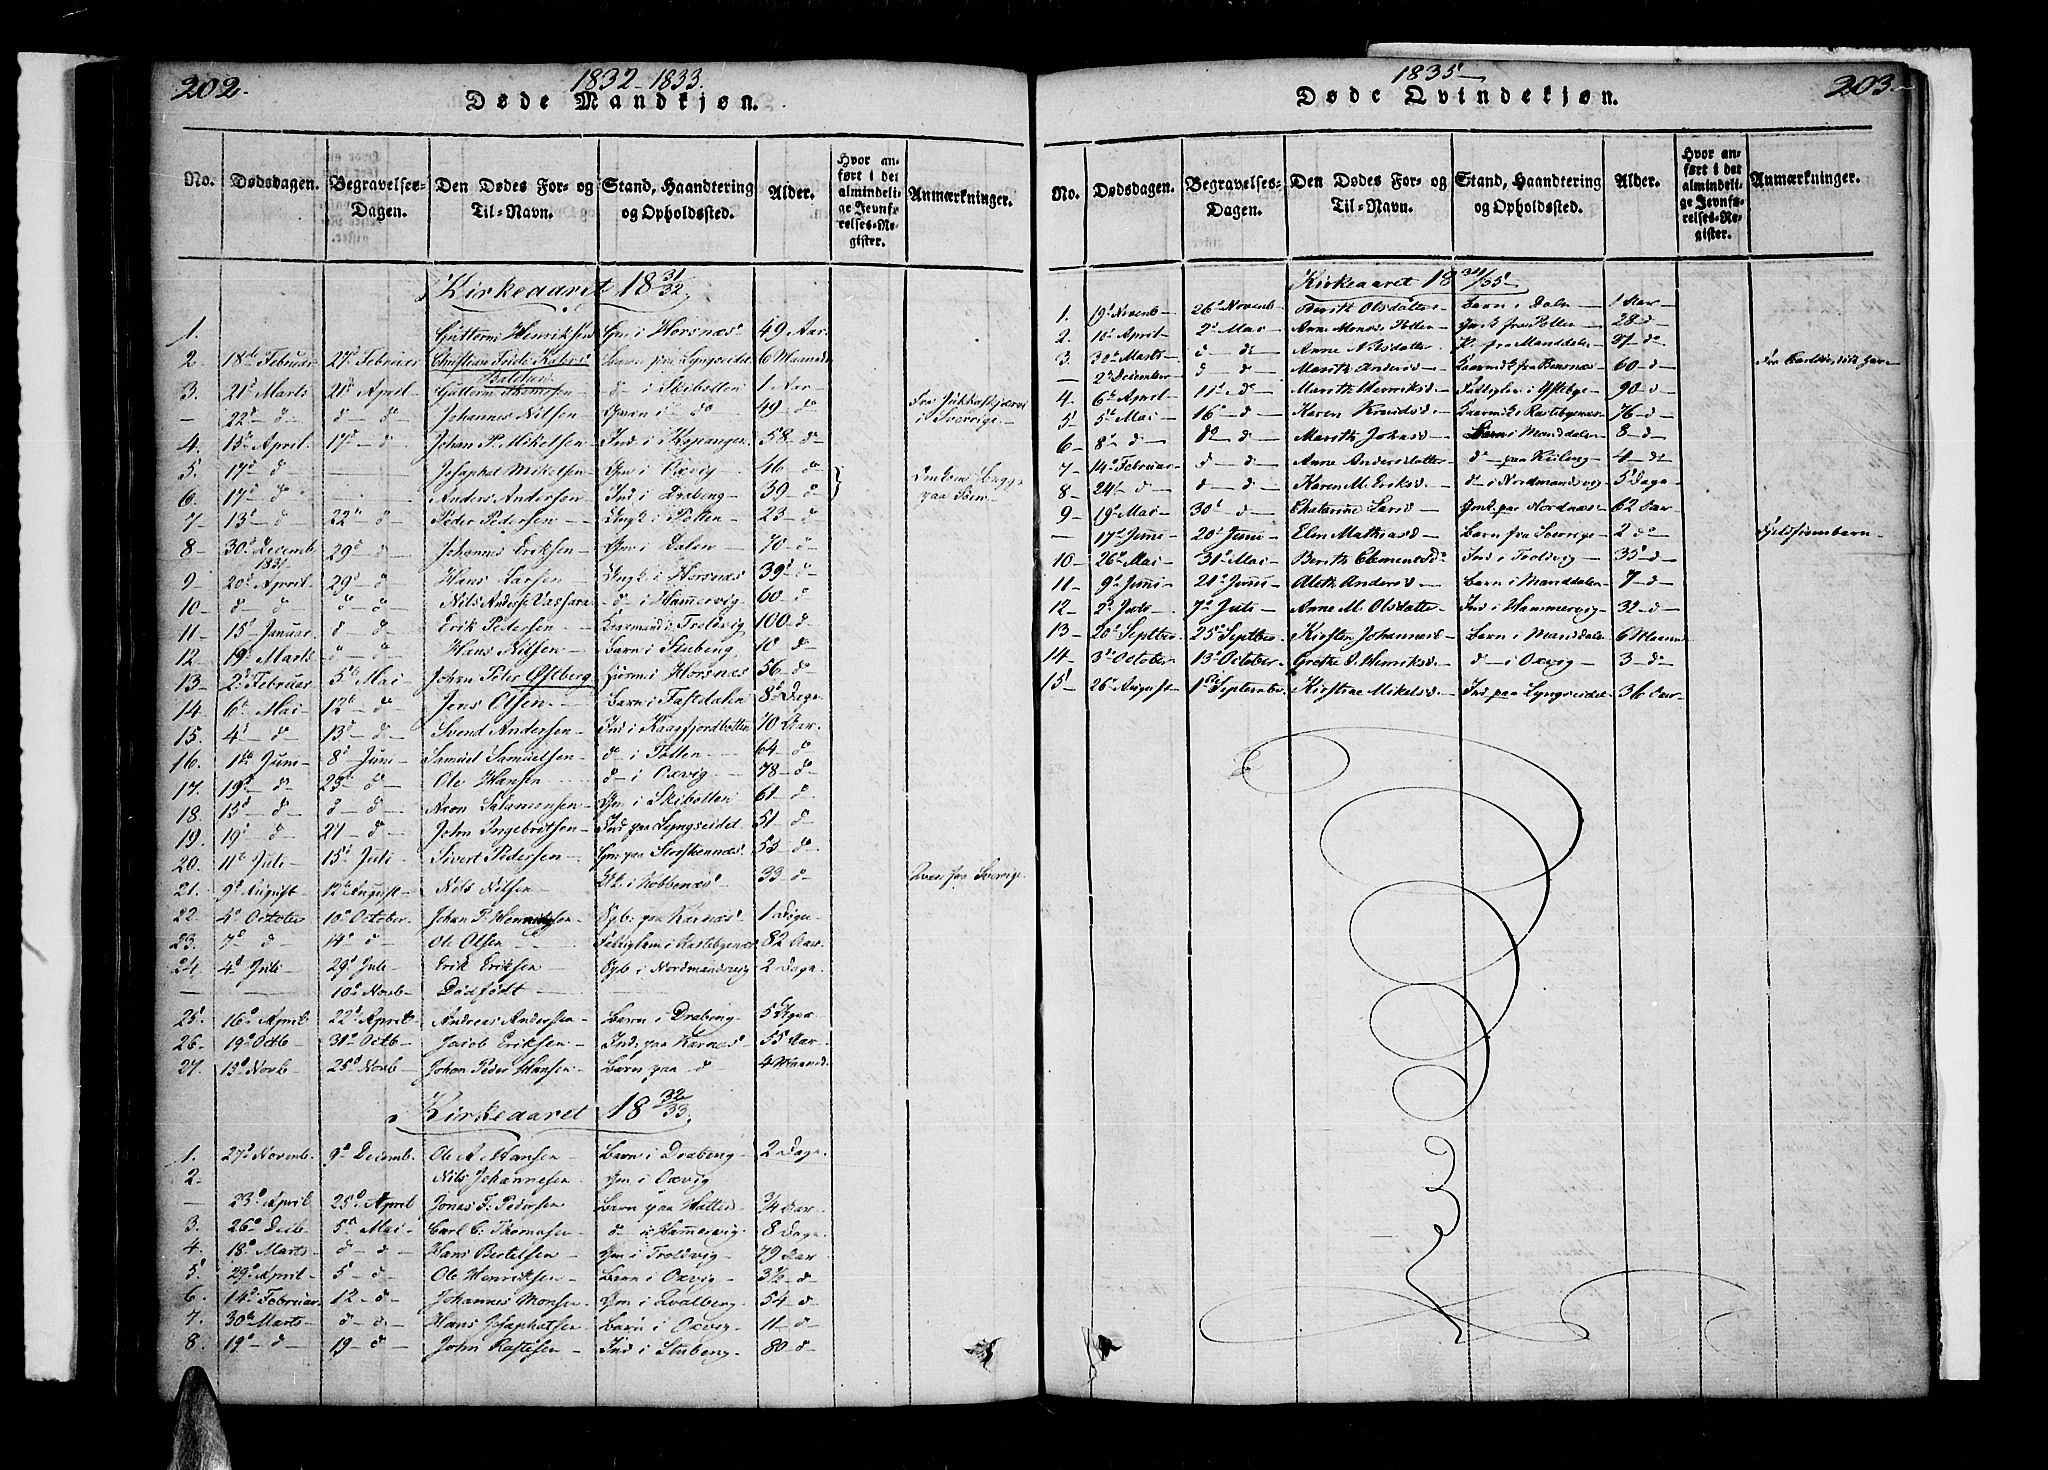 202.
1832-1833.
Døde Mandkjøn.
No. Dødsdagen. Begravelses-Dagen. Den Dødes For- og Til-Navn. Stand, Haandtering og Opholdssted. Alder. Hvor anført i det almindelige Jevnførelses-Register. Anmærkninger.
Kirkeaaret 18 31/32
1. Guttorm Henriksen Gm i Horsnæs 49 Aar
2. 18de Februar 27d Februar Christian Barn paa Lyngseidet 6 Maaneder
3. 21d Marts 21d April Guttorm Thomsen d i Skibotten 1 Aar
— 22d d — d — d Johannes Nilsen Gman i do 49 d Fra Jukkasjärvi i Sverrige
4. 13d April 17d d Johan P. Mikelsen Ind i Kopangen 58 d
5. 17d d Josaphat Mikelsen Gm i Oxvig 46 d Omkom begge paa Søen
6. 17d d Anders Andersen Ind i Draberg 39 d
7. 13d d 22d d Peder Pedersen Ungk i Pollen 23 d
8. 30d Decemb 1831 29d d Johannes Eriksen Gm i Dalen 70 d
9. 20d April 29d d Hans Larsen Ungk i Horsnæs 39 d
10. d d d d Nils Anders Vasara d i Hammervig 60 d
11. 15d Januar d d Erik Pedersen Kaarmand i Troldvig 100 d
12. 19d Marts d d Hans Nilsen Barn i Stuberg 10 d
13. 2d Februar 5d Mai Johan Peter Østberg i Horsnæs 56 d
14. 6d Mai 12d d Jens Olsen Barn i Fastdalen 8 Dage
15. 4d d 13d d Svend Andersen Ind i Kaafjordbotten 70 Aar
16. 1ste Juni 8d Juni Samuel Samuelsen d i Pollen 64 d
17. 19d d 23d d Ole Hansen d i Oxvig 78 d
18. 15d d d d Aron Salamonsen Gm i Skibotten 61 d
19. 19d d 21 d John Ingebretsen Ind paa Lyngseidet 51 d
20. 11te Juli 15d Juli Sivert Pedersen Gm paa Storsteennæs 53 d
21. 9d August 12te August Nils Nilsen i Kobbenæs 33 d Qven fra Sverrige
22. 4d October 10d October Johan P. Henningsen Dgb: paa Karnæs 1 Dage
23. 7d d 14d d Ole Olsen Fattiglem i Rastebynæs 82 Aar
24. 4d Juli 29d Juli Erik Eriksen Dgb i Nordmandsvig 2 Dage
— 10d Novb Dødfødt
25. 16d April 22d April Andreas Andersen Barn i Draberg 5 Uger
26. 19d Octb 31d Octb Jacob Eriksen Ind: paa Karnæs 55 Aar
27. 15d Novb 25d Novb Johan Peder Hansen Barn paa d 4 Maaned
Kirkeaaret 18 32/33
1. 27d Novemb. 9d Decemb. Ole A. Hansen Barn i Draberg 2 Dage
2. Nils Johannesen Gm i Oxvig
— 23d April 25d April Jonas F. Pedersen Barn paa 3/4 Aar
3. 26d Decb 5d Mai Carl C: Thomasen d i Hammervig 8 Dage
4. 18d Marts d d Hans Bertelsen Gm i Troldvig 79 Aar
5. 29d April 5 d Ole Henriksen Barn i Oxvig 3 1/2 d
6. 14d Februar 12 d Johannes Monsen Gm i Qvalberg 54 d
7. 30te Marts d d Hans Josaphatsen Barn i Oxvig 11 d
8. 19d d 19 d John Rastesen Ind i Stuberg 80 d
203
1835
Døde Qvindekjøn.
No. Dødsdagen. Begravelses-Dagen. Den Dødes For- og Til-Navn. Stand, Haandtering og Opholdssted. Alder. Hvor anført i det almindelige Jevnførelses-Register. Anmærkninger.
Kirkeaaret 18 34/35
1. 19d Novemb 26d Novemb Berith Olsdatter Barn i Dalen 1 Aar
2. 10d April 2d Mai Anne Monsd: Pollen fra Pollen 28 d
3. 30te Marts d d Anne Nilsdatter K. fra Manddalen 37 d
— 2d December d d Marith Andersd fra Bensnæs 60 d
4. 6d April 11d d Marith Henriksd Fattiglem i 90 d
5. 5d Mai 16 d Karen Knudsd i Rastebynæs 76 d
6. 8d d do d Marith Johnsd Barn i Manddalen 8 d
7. 14d Februar d d Anne Andersdatter d paa 4 d
8. 24d d d d Karen M. Eriksd d i Nordmandsvig 5 Dage
9. 19d Mai 30d d Chatarine Larsd paa Nordnæs 62 Aar
— 17d Juni 20d Juni Elen Mathiasd Barn fra Sverrige 2 do Fjeldfinnebarn
10. 26d Mai 31d Mai Berith Clemensd Ind i Troldvig 35 d
11. 9d Juni 21d Juni Aleth Andersd Barn i Manddalen 7 d
12. 2d Juli 7d Juli Anne M. Olsdatter Ind i Hammervig 39 d
13. 20d Septbr. 25d Septbr. Kirsten Johannesd Barn i Manddalen 6 Maaned
14. 3d October 13d October Grethe J. Henriksd d i Oxvig 3 d
15. 26d August 1ste September Kirstine Mikelsd Ind paa Lyngseidet 36 Aar